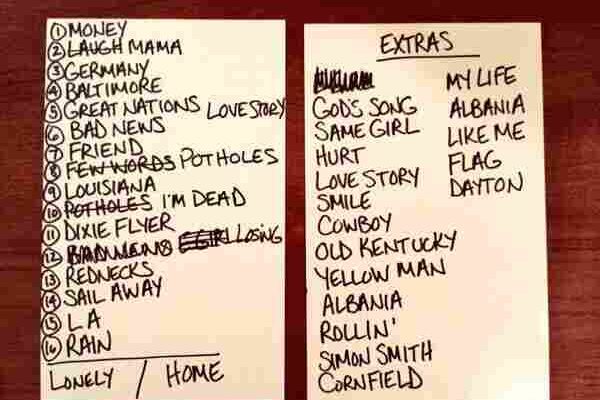 ① MONEY
② LAUGH MAMA
③ GERMANY
④ BALTIMORE
⑤ GREAT NATIONS LOVE STORY
⑥ BAD NEWS
⑦ FRIEND
⑧ FEW WORDS POTHOLES
⑨ LOUISIANA
⑩ POTHOLES I'M DEAD
⑪ DIXIE FLYER
⑫ BAD NEWS LOSING
⑬ REDNECKS
⑭ SAIL AWAY
⑮ LA
⑯ RAIN
LONELY / HOME
EXTRAS
GOD'S SONG
SAME GIRL
HURT
LOVE STORY
SMILE
COWBOY
OLD KENTUCKY
YELLOW MAN
ALBANIA
ROLLIN'
SIMON SMITH
CORNFIELD
MY LIFE
ALBANIA
LIKE ME
FLAG
DAYTON